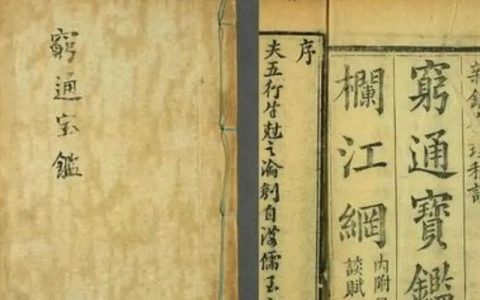 窮通宝鑑
窮通寶鑑
欄江網
內附
談賦
序
夫五行生尅之論創自漢儒